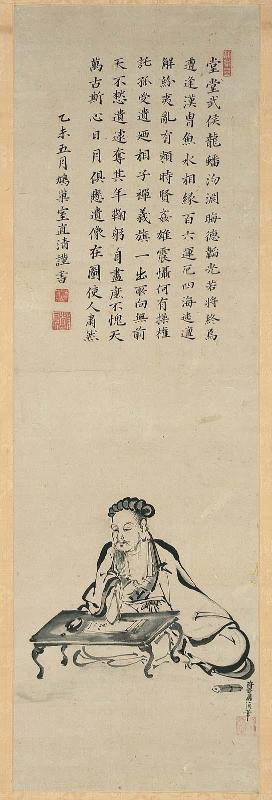 堂堂武侯龍蟠沕淵晦德韜光若將終焉
遭逢漢胄魚水相緣百六運厄四海迍邅
解紛夷亂有頼時賢姦雄震懾何有操權
託孤受遺廼相子禪義旗一出所向無前
天不憖遺遽奪其年鞠躬自盡庶不愧天
萬古斯心日月俱懸遺像在圖使人肅然
乙未五月鳩巢室直清謹書
筆